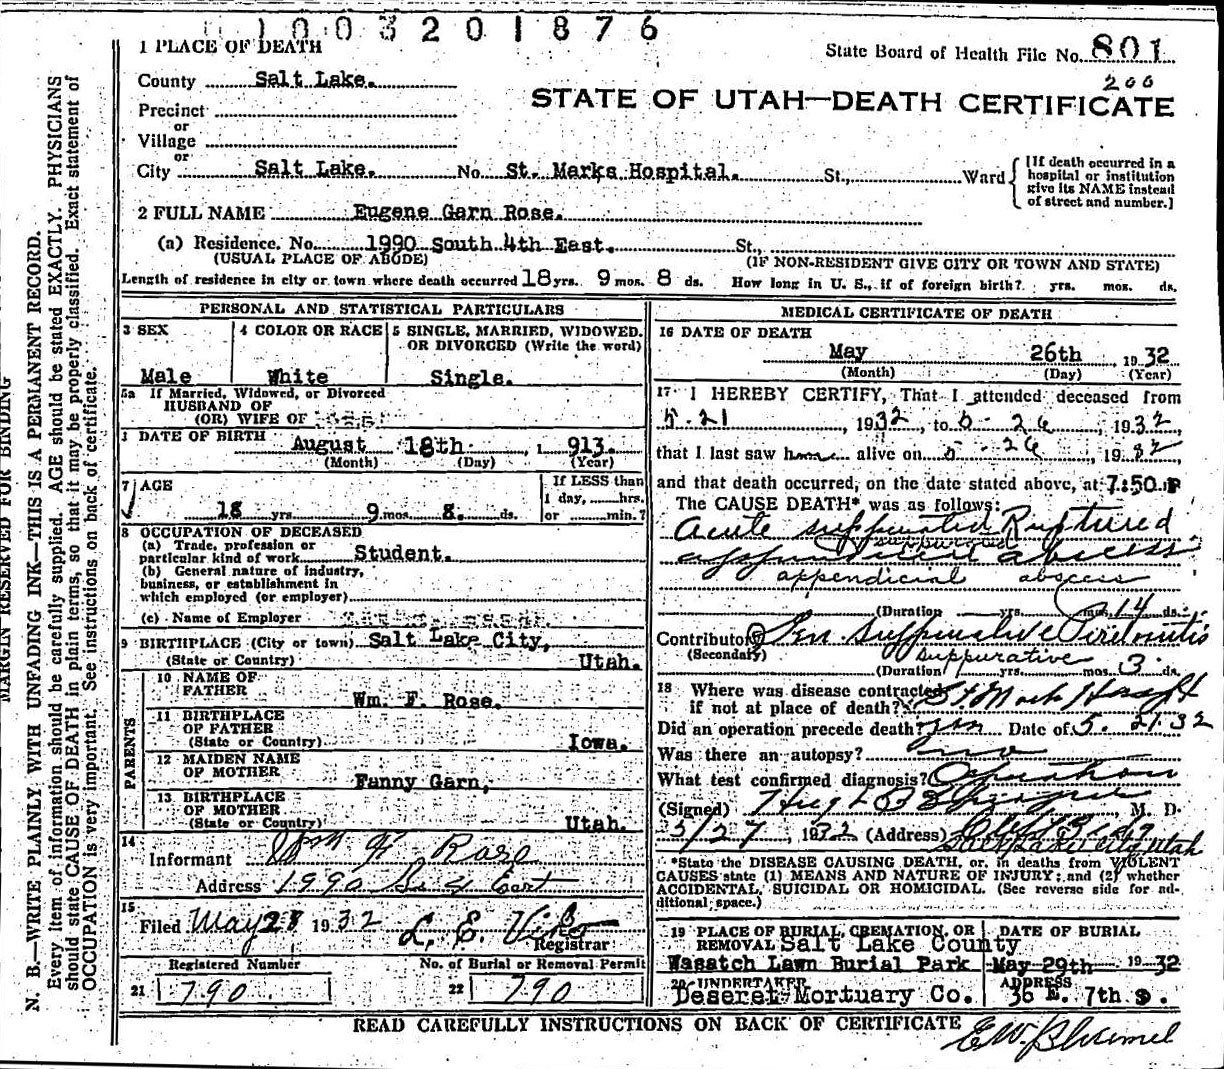 1003201876
1 PLACE OF DEATH
State Board of Health File No. 801
200
County Salt Lake.
STATE OF UTAH—DEATH CERTIFICATE
Precinct
or
Village
or
City Salt Lake. No. St. Marks Hospital. St., Ward
[If death occurred in a hospital or institution give its NAME instead of street and number.]
2 FULL NAME Eugene Garn Rose.
(a) Residence. No. 1990 South 4th East. St.,
(USUAL PLACE OF ABODE) (IF NON-RESIDENT GIVE CITY OR TOWN AND STATE)
Length of residence in city or town where death occurred 18 yrs. 9 mos. 8 ds. How long in U. S., if of foreign birth? yrs. mos. ds.
PERSONAL AND STATISTICAL PARTICULARS
3 SEX
Male
4 COLOR OR RACE
White
5 SINGLE, MARRIED, WIDOWED, OR DIVORCED (Write the word)
Single.
5a If Married, Widowed, or Divorced
HUSBAND OF
(OR) WIFE OF
DATE OF BIRTH August 18th, 1 913.
(Month) (Day) (Year)
7 AGE
18 yrs. 9 mos. 8. ds.
If LESS than
1 day, hrs.
or min.?
8 OCCUPATION OF DECEASED
(a) Trade, profession or
particular kind of work Student.
(b) General nature of industry,
business, or establishment in
which employed (or employer)
(c) Name of Employer
9 BIRTHPLACE (City or town) Salt Lake City,
(State or Country) Utah.
PARENTS
10 NAME OF
FATHER Wm. F. Rose.
11 BIRTHPLACE
OF FATHER
(State or Country) Iowa.
12 MAIDEN NAME
OF MOTHER Fanny Garn,
13 BIRTHPLACE
OF MOTHER
(State or Country) Utah.
14
Informant Wm F Rose
Address 1990 So 4 East
15
Filed May 28 1932 L. E. Viko
Registrar
Registered Number No. of Burial or Removal Permit
21 790 22 790
MEDICAL CERTIFICATE OF DEATH
16 DATE OF DEATH
May 26th, 1932
(Month) (Day) (Year)
17 I HEREBY CERTIFY, That I attended deceased from
5-21, 1932, to 5-26, 1932,
that I last saw him alive on 5-26, 1932
and that death occurred, on the date stated above, at 7:50 P
The CAUSE DEATH* was as follows:
Acute suppurated Ruptured
suppurated
appendicial abscess
appendicial abscess
(Duration yrs. mos. 14 ds.
Contributory Gen suppurative Peritonitis
(Secondary) suppurative
(Duration yrs. mos. 3 ds.
18 Where was disease contracted
if not at place of death? St. Mark Hospt
Did an operation precede death? yes Date of 5. 21.32
Was there an autopsy? no
What test confirmed diagnosis? Operation
(Signed) Hugh B M. D.
5/27, 1932 (Address)
Salt Lake City Utah
*State the DISEASE CAUSING DEATH, or, in deaths from VIOLENT
CAUSES state (1) MEANS AND NATURE OF INJURY; and (2) whether
ACCIDENTAL, SUICIDAL OR HOMICIDAL. (See reverse side for ad-
ditional space.)
19 PLACE OF BURIAL, CREMATION, OR
REMOVAL Salt Lake County
Wasatch Lawn Burial Park
DATE OF BURIAL
May 29th 1932
20 UNDERTAKER
Deseret Mortuary Co.
ADDRESS
36 E. 7th S.
READ CAREFULLY INSTRUCTIONS ON BACK OF CERTIFICATE
MARGIN RESERVED FOR BINDING
N. B.—WRITE PLAINLY WITH UNFADING INK—THIS IS A PERMANENT RECORD.
Every item of information should be carefully supplied. AGE should be stated EXACTLY. PHYSICIANS
should state CAUSE OF DEATH in plain terms, so that it may be properly classified. Exact statement of
OCCUPATION is very important. See instructions on back of certificate.